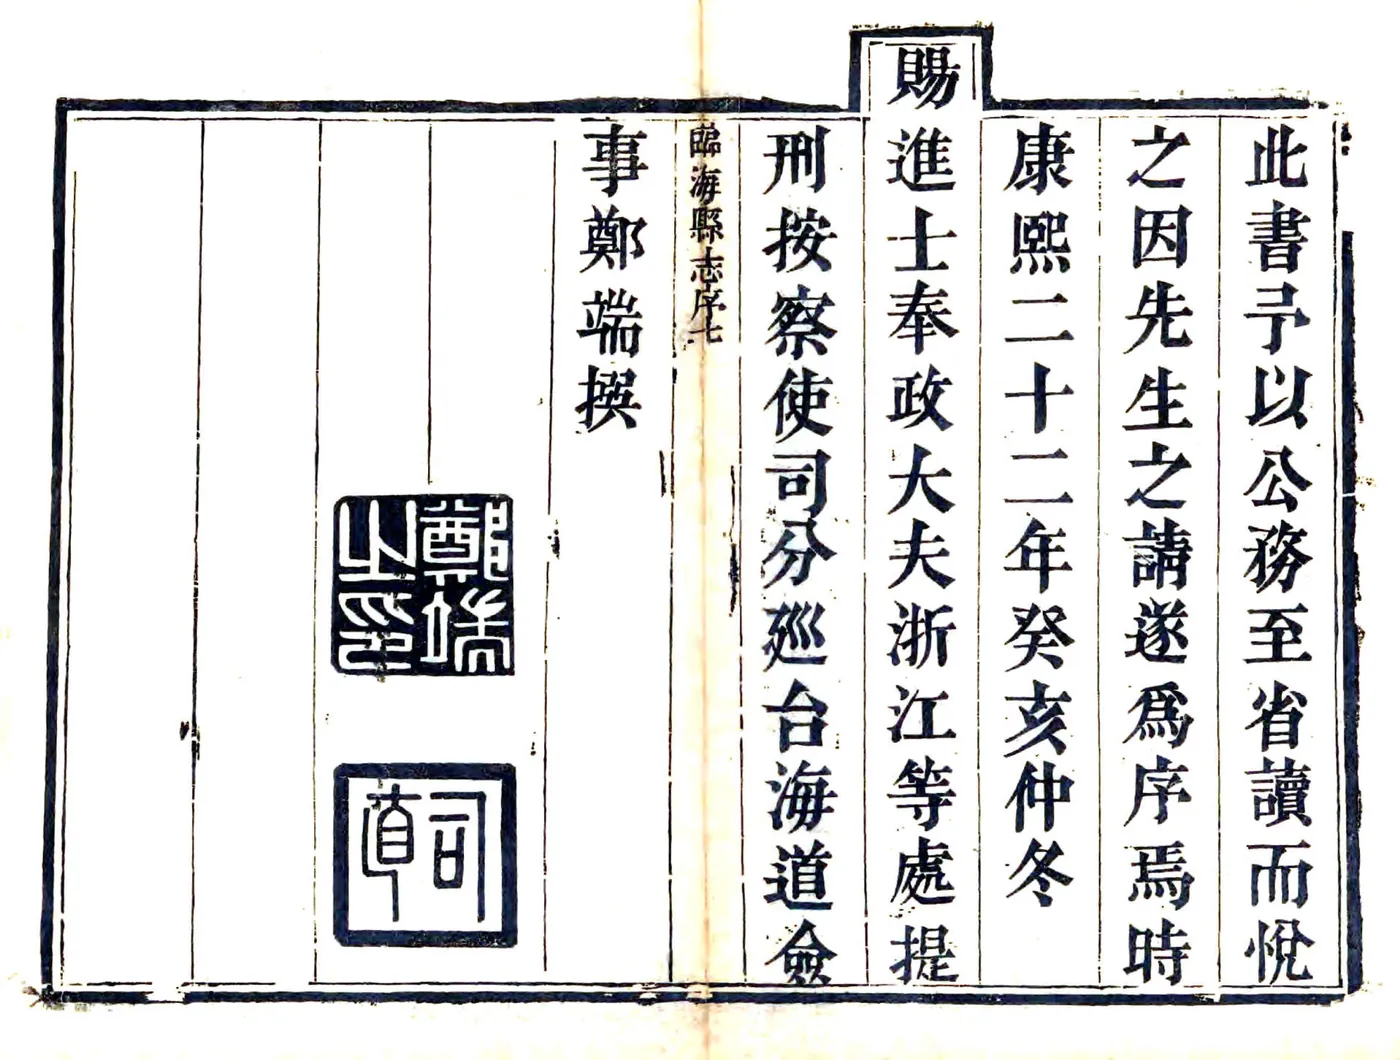 此書予以公務至省讀而悅
之因先生之請遂爲序焉時
康熙二十二年癸亥仲冬
賜進士奉政大夫浙江等處提
刑按察使司分廵台海道僉
臨海縣志序七
事鄭端撰
鄭端
之印
司
直